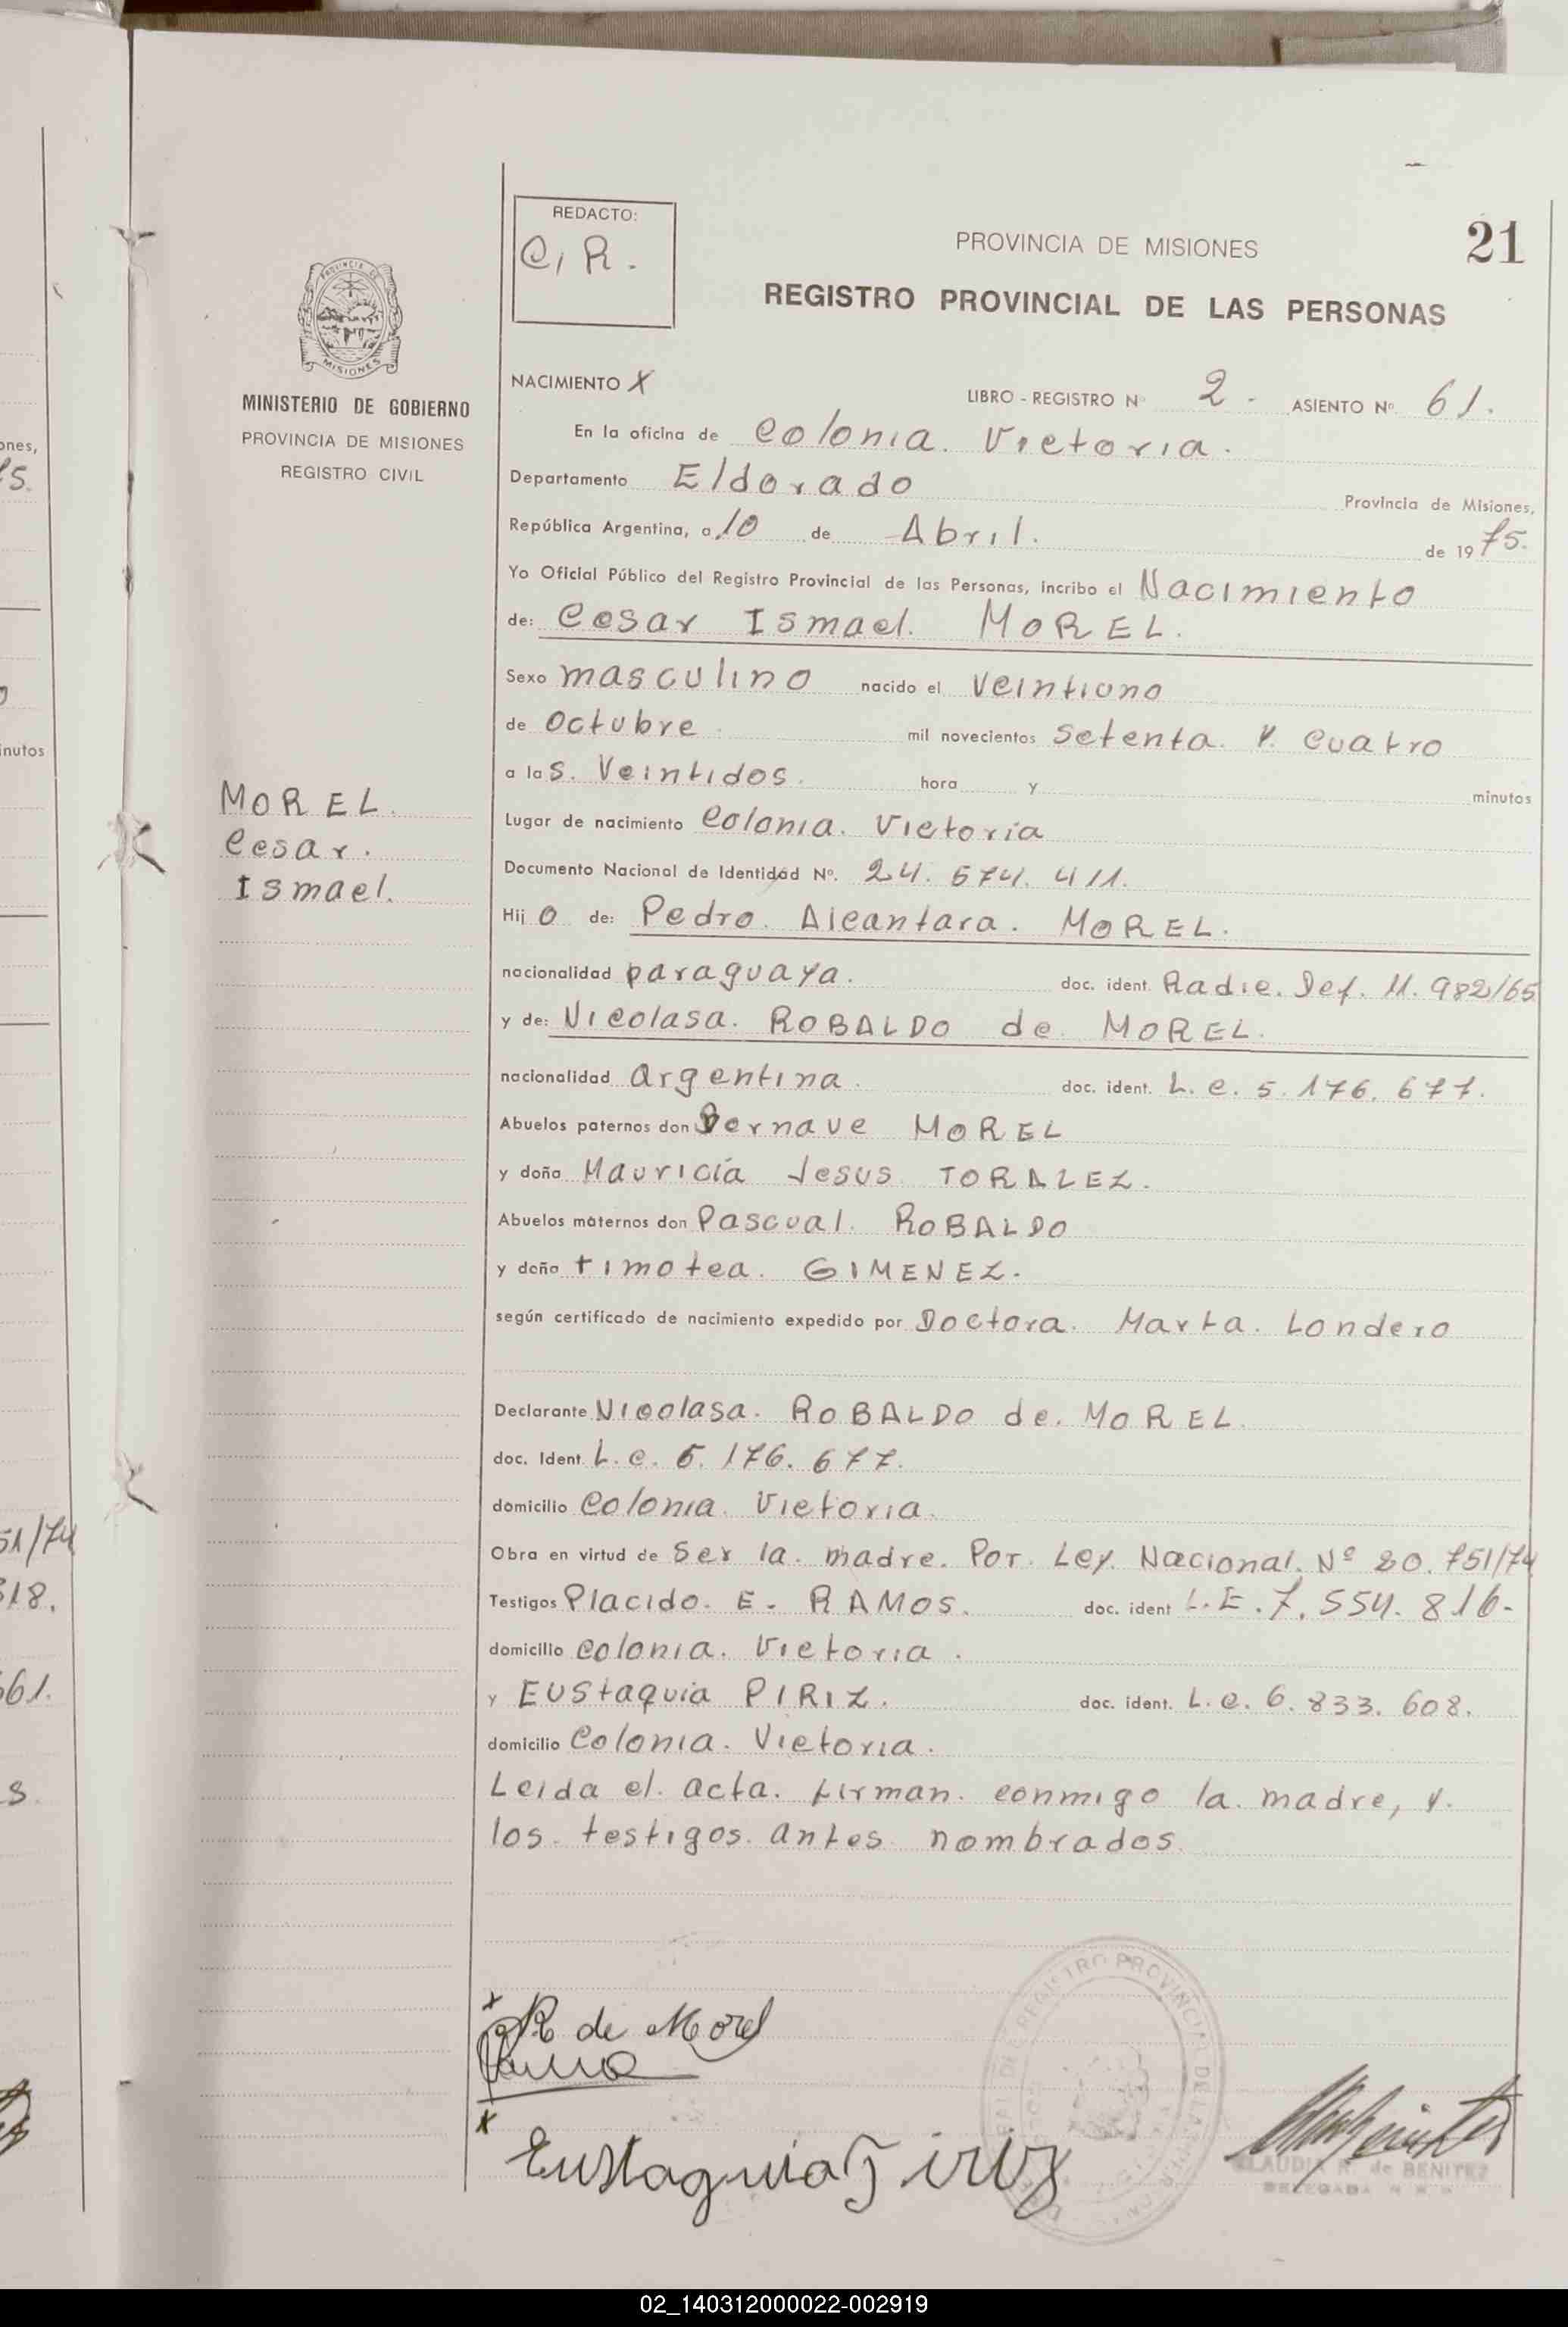 REDACTO:
C, R.
PROVINCIA DE MISIONES
21
REGISTRO PROVINCIAL DE LAS PERSONAS
PROVINCIA DE
MISIONES
MINISTERIO DE GOBIERNO
PROVINCIA DE MISIONES
REGISTRO CIVIL
NACIMIENTO X LIBRO - REGISTRO Nº 2 - ASIENTO Nº 61.
En la oficina de Colonia. Victoria.
Departamento Eldorado Provincia de Misiones,
República Argentina, a 10 de Abril. de 1975.
Yo Oficial Público del Registro Provincial de las Personas, incribo el Nacimiento
de: Cesar Ismael. MOREL.
Sexo masculino nacido el veintiuno
de octubre mil novecientos setenta. y. cuatro
a las. Veintidos. hora y minutos
Lugar de nacimiento Colonia. Victoria
Documento Nacional de Identidad Nº. 24. 574. 411.
Hijo de: Pedro. Alcantara. MOREL.
nacionalidad paraguaya. doc. ident. Radic. Def. 11. 982/65
y de: Nicolasa. ROBALDO de MOREL.
nacionalidad argentina. doc. ident. L. C. 5. 176. 677.
Abuelos paternos don Bernave MOREL
y doña Mauricia Jesus TORALEZ.
Abuelos maternos don Pascual. ROBALDO
y doña timotea. GIMENEZ.
según certificado de nacimiento expedido por Doctora. Marta. Londero
Declarante Nicolasa. ROBALDO de. MOREL.
doc. Ident. L. C. 5. 176. 677.
domicilio Colonia. Victoria.
Obra en virtud de Ser la. madre. Por. Ley. Nacional. Nº 20. 751/74
Testigos Placido. E. RAMOS. doc. ident L. E. 7. 554. 816-
domicilio colonia. Victoria.
y EUStaquia PIRIZ. doc. ident. L. C. 6. 833. 608.
domicilio Colonia. Victoria.
Leida el. acta. firman. conmigo la madre, y.
los. testigos. antes. nombrados.
MOREL.
Cesar.
Ismael.
x
R de Morel
x
Eustaquia Piriz
REGISTRO PROVINCIAL DE LAS PER
CLAUDIA R. de BENITEZ
DELEGADA
ones,
75.
inutos
51/74
318.
661.
s.
02_140312000022-002919